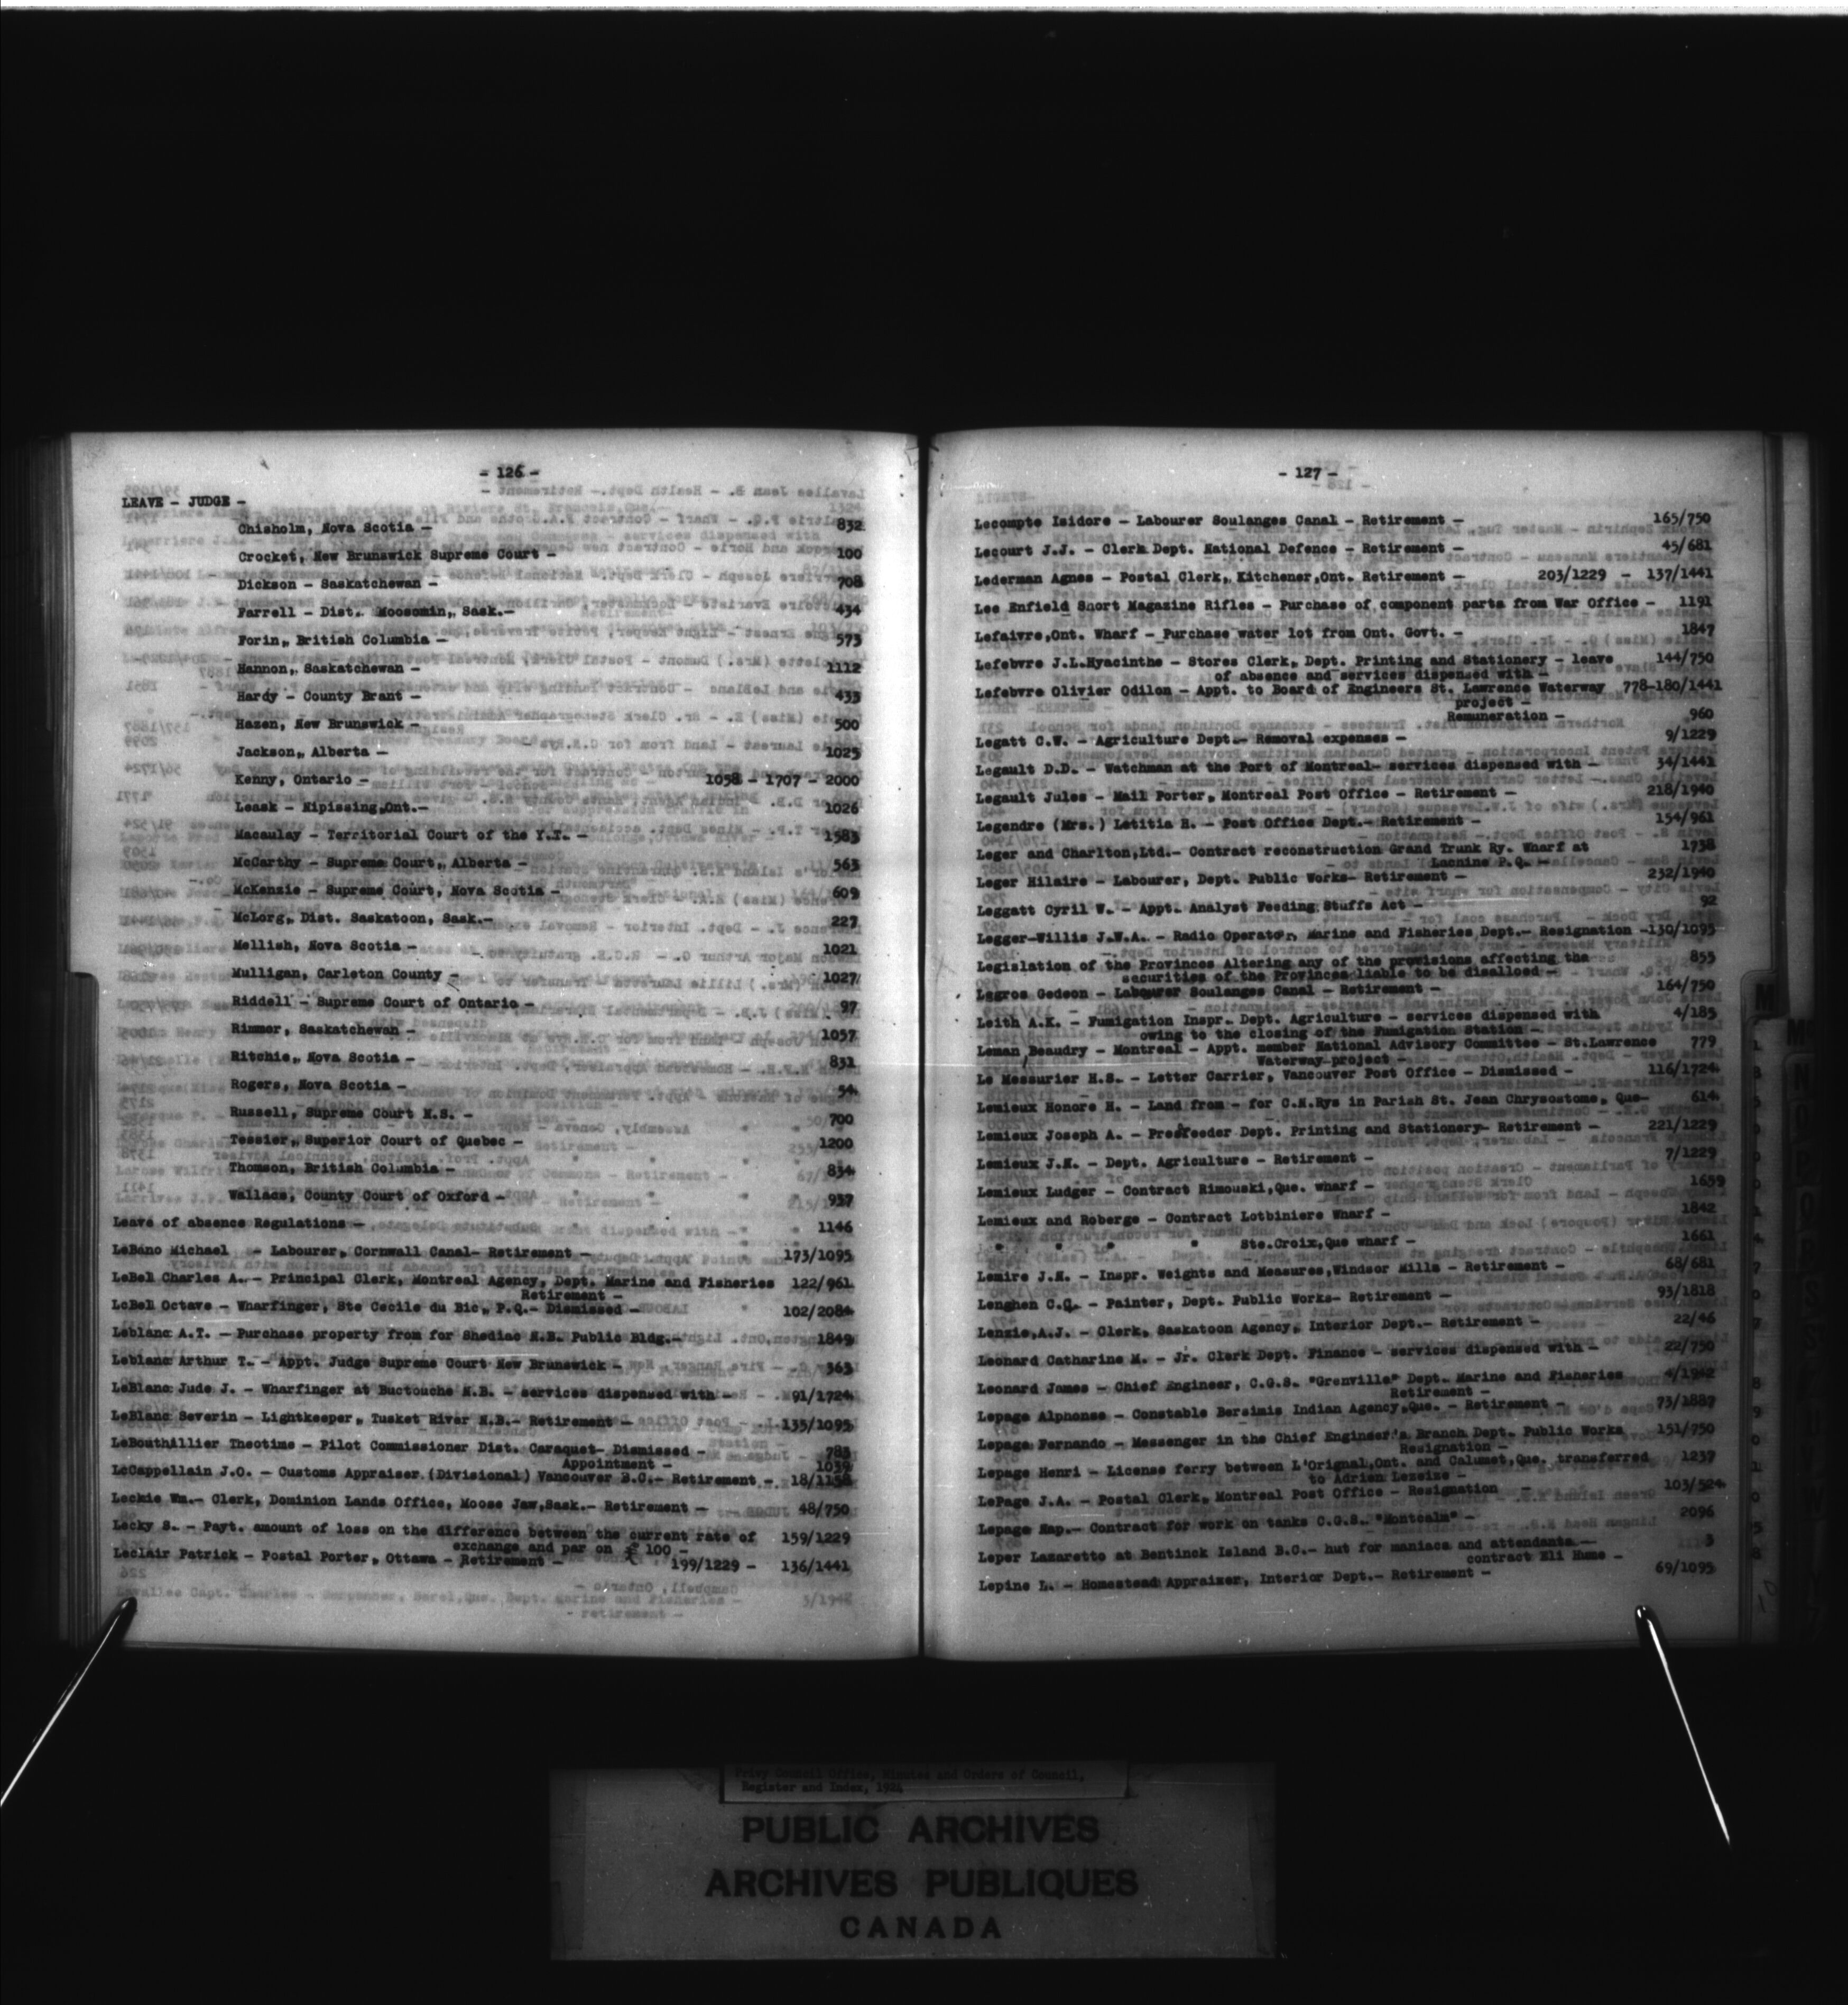 - 126 -
LEAVE - JUDGE -
Chisholm, Nova Scotia - 832
Crocket, New Brunswick Supreme Court - 100
Dickson - Saskatchewan - 708
Farrell - Dist. Moosomin, Sask.- 434
Forin, British Columbia - 573
Hannon, Saskatchewan - 1112
Hardy - County Brant - 433
Hazen, New Brunswick - 500
Jackson, Alberta - 1025
Kenny, Ontario - 1058 - 1707 - 2000
Leask - Nipissing,Ont.- 1026
Macaulay - Territorial Court of the Y.T. - 1583
McCarthy - Supreme Court, Alberta - 563
McKenzie - Supreme Court, Nova Scotia - 609
McLorg, Dist. Saskatoon, Sask.- 227
Mellish, Nova Scotia - 1021
Mulligan, Carleton County - 1027
Riddell - Supreme Court of Ontario - 97
Rimmer, Saskatchewan - 1057
Ritchie, Nova Scotia - 831
Rogers, Nova Scotia - 54
Russell, Supreme Court N.S. - 700
Tessier, Superior Court of Quebec - 1200
Thomson, British Columbia - 834
Wallace, County Court of Oxford - 937
Leave of absence Regulations - 1146
LeBano Michael - Labourer, Cornwall Canal- Retirement - 173/1095
LeBel Charles A. - Principal Clerk, Montreal Agency, Dept. Marine and Fisheries 122/961
Retirement -
LeBel Octave - Wharfinger, Ste Cecile du Bic, P.Q.- Dismissed - 102/2084
Leblanc A.T. - Purchase property from for Shediac N.B. Public Bldg.- 1849
Leblanc Arthur T. - Appt. Judge Supreme Court New Brunswick - 363
LeBlanc Jude J. - Wharfinger at Buctouche N.B. - services dispensed with - 91/1724
LeBlanc Severin - Lightkeeper, Tusket River N.B.- Retirement - 135/1095
LeBouthillier Theotime - Pilot Commissioner Dist. Caraquet- Dismissed - 783
Appointment - 1039
LeCappellain J.O. - Customs Appraiser (Divisional) Vancouver B.C.- Retirement - 18/1158
Leckie Wm.- Clerk, Dominion Lands Office, Moose Jaw,Sask.- Retirement - 48/750
Lecky S. - Payt. amount of loss on the difference between the current rate of 159/1229
exchange and par on £ 100 -
Leclair Patrick - Postal Porter, Ottawa - Retirement - 199/1229 - 136/1441
- 127 -
Lecompte Isidore - Labourer Soulanges Canal - Retirement - 165/750
Lecourt J.J. - Clerk Dept. National Defence - Retirement - 45/681
Lederman Agnes - Postal Clerk, Kitchener,Ont. Retirement - 203/1229 - 137/1441
Lee Enfield Short Magazine Rifles - Purchase of component parts from War Office - 1191
Lefaivre,Ont. Wharf - Purchase water lot from Ont. Govt. - 1847
Lefebvre J.L.Hyacinthe - Stores Clerk, Dept. Printing and Stationery - leave 144/750
of absence and services dispensed with -
Lefebvre Olivier Odilon - Appt. to Board of Engineers St. Lawrence Waterway 778-180/1441
project -
Remuneration - 960
Legatt C.W. - Agriculture Dept.- Removal expenses - 9/1229
Legault D.D. - Watchman at the Port of Montreal- services dispensed with - 34/1441
Legault Jules - Mail Porter, Montreal Post Office - Retirement - 218/1940
Legendre (Mrs.) Letitia H. - Post Office Dept.- Retirement - 154/961
Leger and Charlton,Ltd.- Contract reconstruction Grand Trunk Ry. Wharf at 1738
Lachine P.Q. -
Leger Hilaire - Labourer, Dept. Public Works- Retirement - 232/1940
Leggatt Cyril W. - Appt. Analyst Feeding Stuffs Act - 92
Legger-Willis J.W.A. - Radio Operator, Marine and Fisheries Dept.- Resignation -130/1095
Legislation of the Provinces Altering any of the provisions affecting the 855
securities of the Provinces liable to be disallowd -
Legros Gedeon - Labourer Soulanges Canal - Retirement - 164/750
Leith A.K. - Fumigation Inspr. Dept. Agriculture - services dispensed with 4/185
owing to the closing of the Fumigation Station -
Leman Beaudry - Montreal - Appt. member National Advisory Committee - St.Lawrence 779
Waterway project -
Le Messurier H.S. - Letter Carrier, Vancouver Post Office - Dismissed - 116/1724
Lemieux Honore H. - Land from - for C.N.Rys in Parish St. Jean Chrysostome, Que- 614
Lemieux Joseph A. - Presfeeder Dept. Printing and Stationery- Retirement - 221/1229
Lemieux J.N. - Dept. Agriculture - Retirement - 7/1229
Lemieux Ludger - Contract Rimouski,Que. wharf - 1659
Lemieux and Roberge - Contract Lotbiniere Wharf - 1842
" " " " Ste.Croix,Que wharf - 1661
Lemire J.N. - Inspr. Weights and Measures,Windsor Mills - Retirement - 68/681
Lenghen C.Q. - Painter, Dept. Public Works- Retirement - 93/1818
Lenzie,A.J. - Clerk, Saskatoon Agency, Interior Dept.- Retirement - 22/46
Leonard Catharine M. - Jr. Clerk Dept. Finance - services dispensed with - 22/750
Leonard James - Chief Engineer, C.G.S. "Grenville" Dept. Marine and Fisheries 4/1942
Retirement -
Lepage Alphonse - Constable Bersimis Indian Agency,Que. - Retirement - 73/1887
Lepage Fernando - Messenger in the Chief Engineer's Branch Dept. Public Works 151/750
Resignation -
Lepage Henri - License ferry between L'Orignal,Ont. and Calumet,Que. transferred 1237
to Adrien Lezeize -
LePage J.A. - Postal Clerk, Montreal Post Office - Resignation - 103/524
Lepage Nap.- Contract for work on tanks C.G.S. "Montcalm" - 2096
Leper Lazaretto at Bentinck Island B.C.- hut for maniacs and attendants - 3
contract Eli Hume -
Lepine L. - Homestead Appraizer, Interior Dept.- Retirement - 69/1095
Privy Council Office, Minutes and Orders of Council,
Register and Index, 1924
PUBLIC ARCHIVES
ARCHIVES PUBLIQUES
CANADA